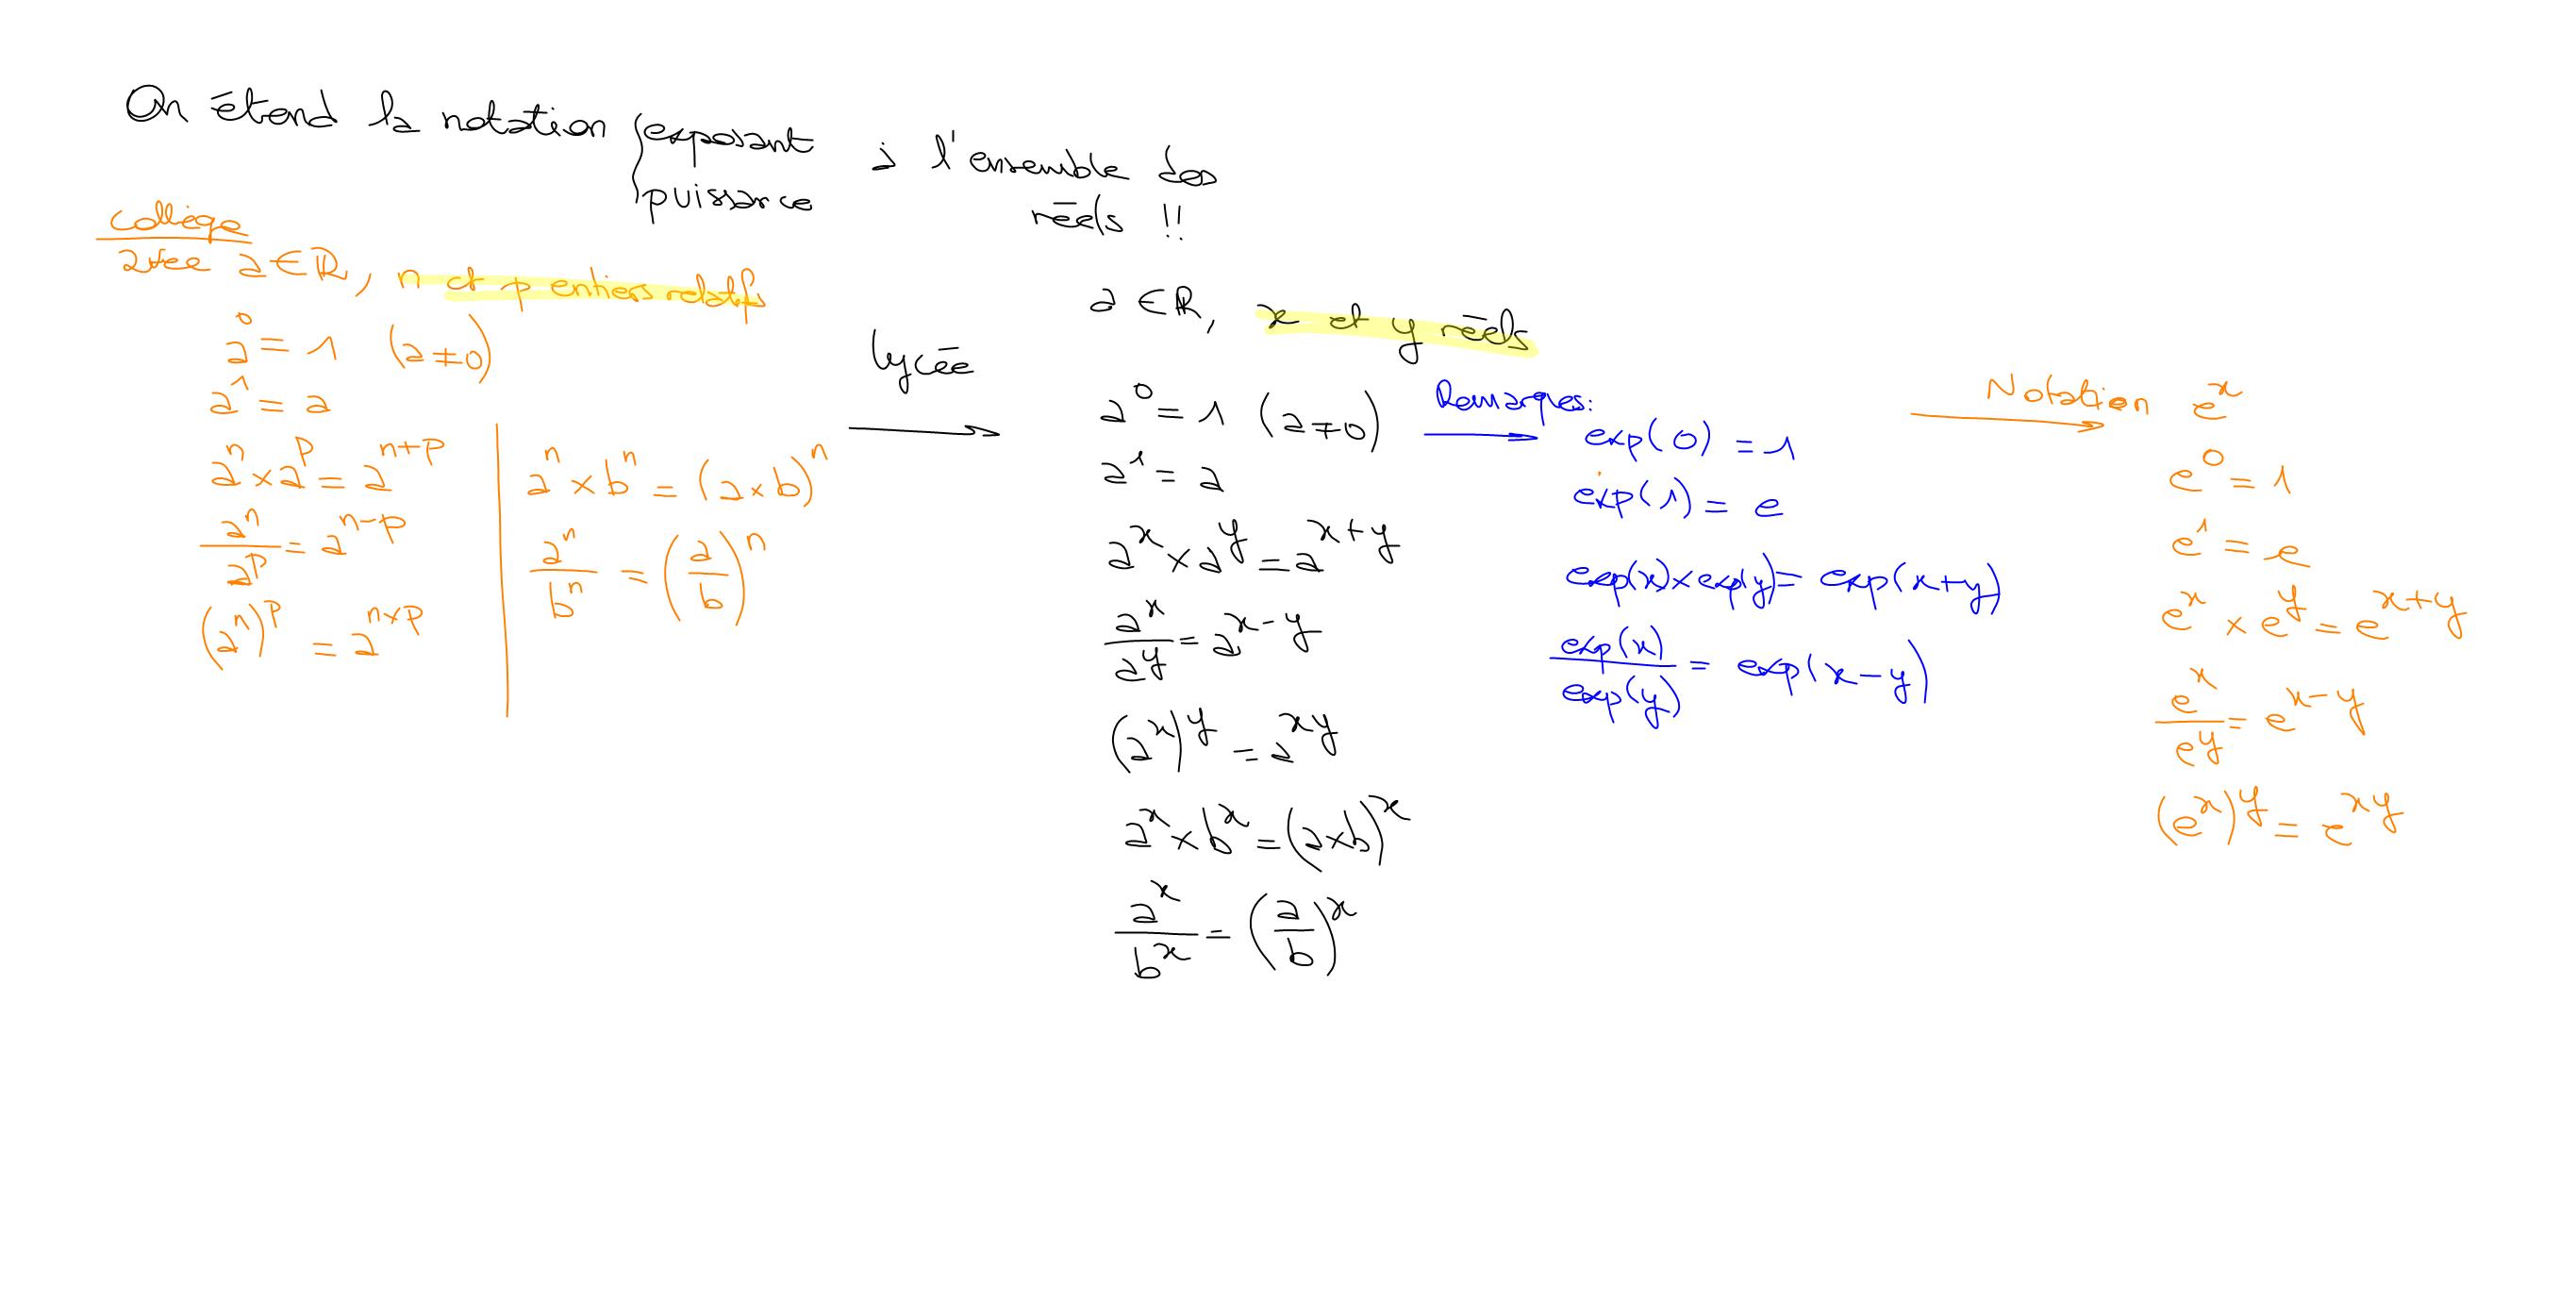 On étend la notation { exposant puissance à l'ensemble des
réels !!
collège
avec a ∈ ℝ, n et p entiers relatifs
a⁰ = 1 (a ≠ 0)
a¹ = a
aⁿ × aᵖ = aⁿ⁺ᵖ
aⁿ/aᵖ = aⁿ⁻ᵖ
(aⁿ)ᵖ = a^(n×p)
aⁿ × bⁿ = (a×b)ⁿ
aⁿ/bⁿ = (a/b)ⁿ
lycée
a ∈ ℝ, x et y réels
a⁰ = 1 (a ≠ 0)
a¹ = a
a^x × a^y = a^(x+y)
a^x/a^y = a^(x-y)
(a^x)^y = a^(xy)
a^x × b^x = (a×b)^x
a^x/b^x = (a/b)^x
Remarques:
exp(0) = 1
exp(1) = e
exp(x)×exp(y) = exp(x+y)
exp(x)/exp(y) = exp(x-y)
Notation e^x
e⁰ = 1
e¹ = e
e^x × e^y = e^(x+y)
e^x/e^y = e^(x-y)
(e^x)^y = e^(xy)